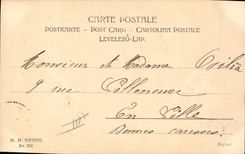 CARTE POSTALE
POSTKARTE - POST CARD - CARTOLINA POSTALE
LEVELEZÖ-LAP.
Monsieur et Madame
9 rue Villeneuve
En Ville
Bonnes caresses.
M. M. VIENNE.